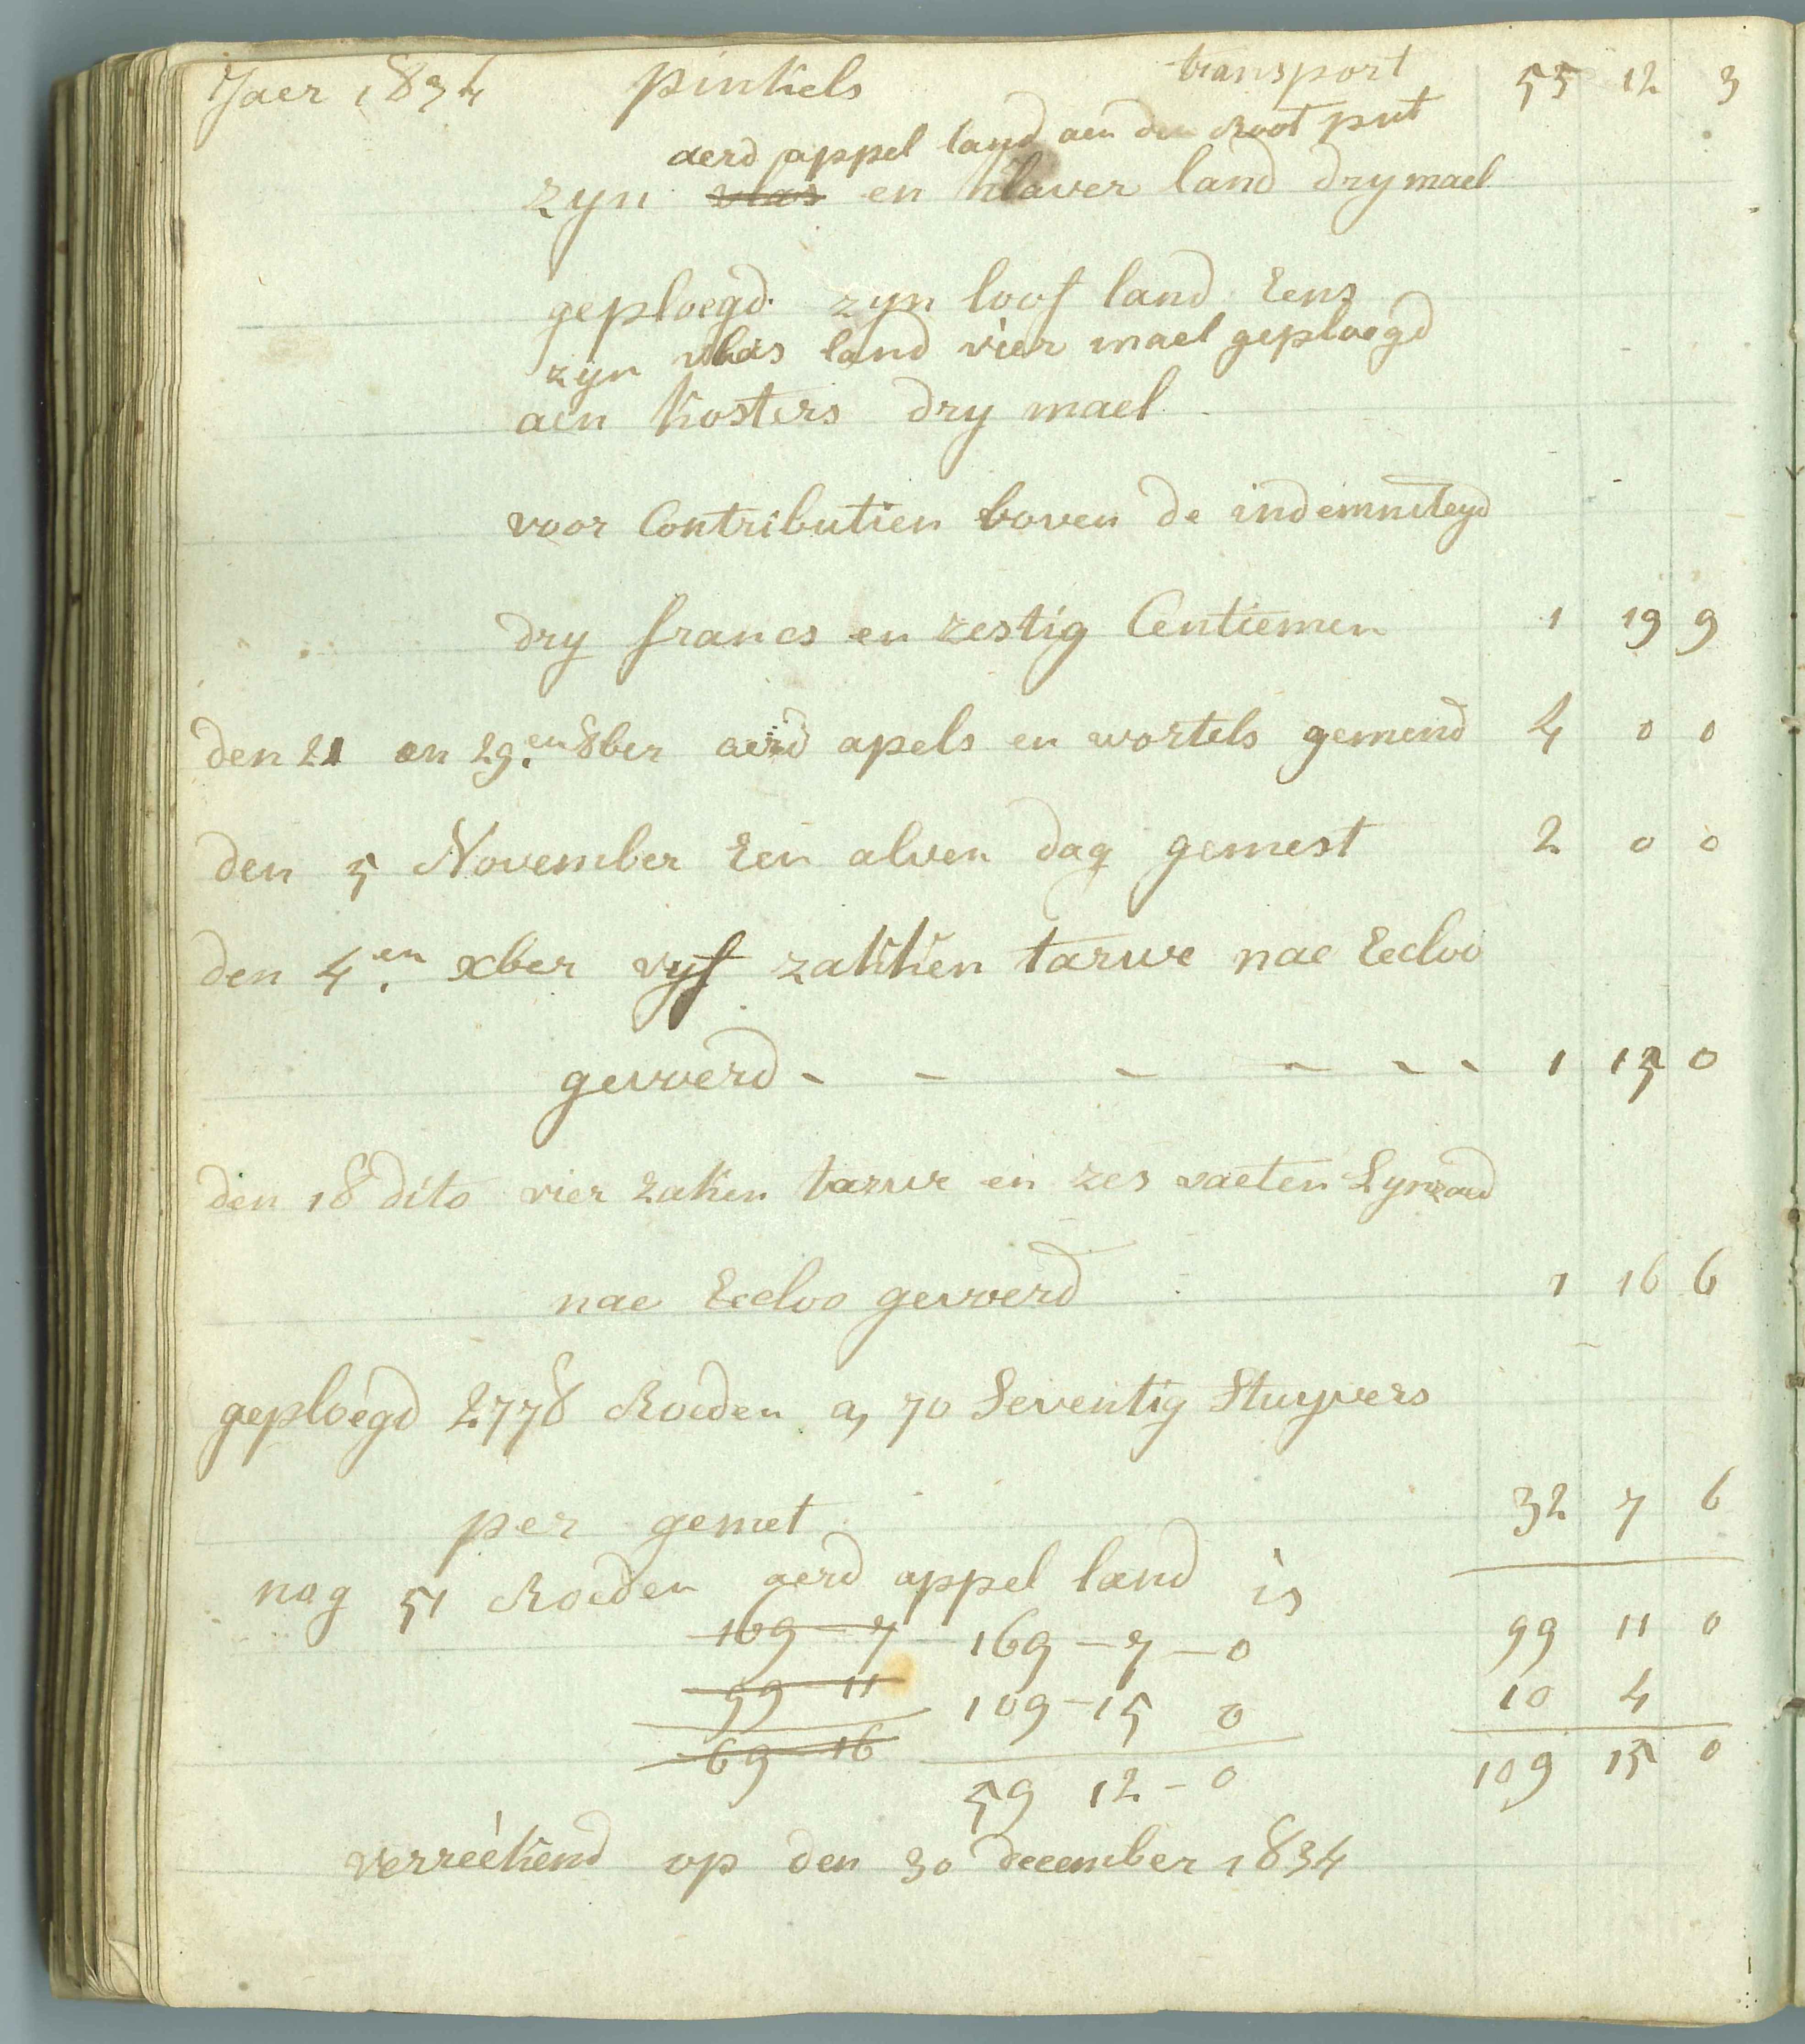 Jaer 1834 pinkels transport 55 12 3
aerd appel land aen den Root put
zyn vlas en klaver land drymael
geploegd zyn loof land Eens
zyn vlas land vier mael geploegd
aen kosters dry mael
voor Contributien boven de indemniteyd
dry francs en zestig Centiemen 1 19 9
den 21 en 29.en 8ber aerd apels en wortels gemend 4 0 0
den 5 November Een alven dag gemest 2 0 0
den 4.en xber vyf zakken tarwe nae Eecloo
gevoerd - - - - - - 1 15 0
den 18 dito vier zaken tarwe en zes vaeten Lynzaed
nae Eecloo gevoerd 1 16 6
geploegd 2778 Roeden a 70 Seventig Stuyvers
per gemet 32 7 6
nog 51 Roeden aerd appel land is
169 - 7 169 - 7 - 0 99 11 0
99 11 109 - 15 0 10 4
69 - 16 59 12 - 0 109 15 0
verreékend op den 30 december 1834